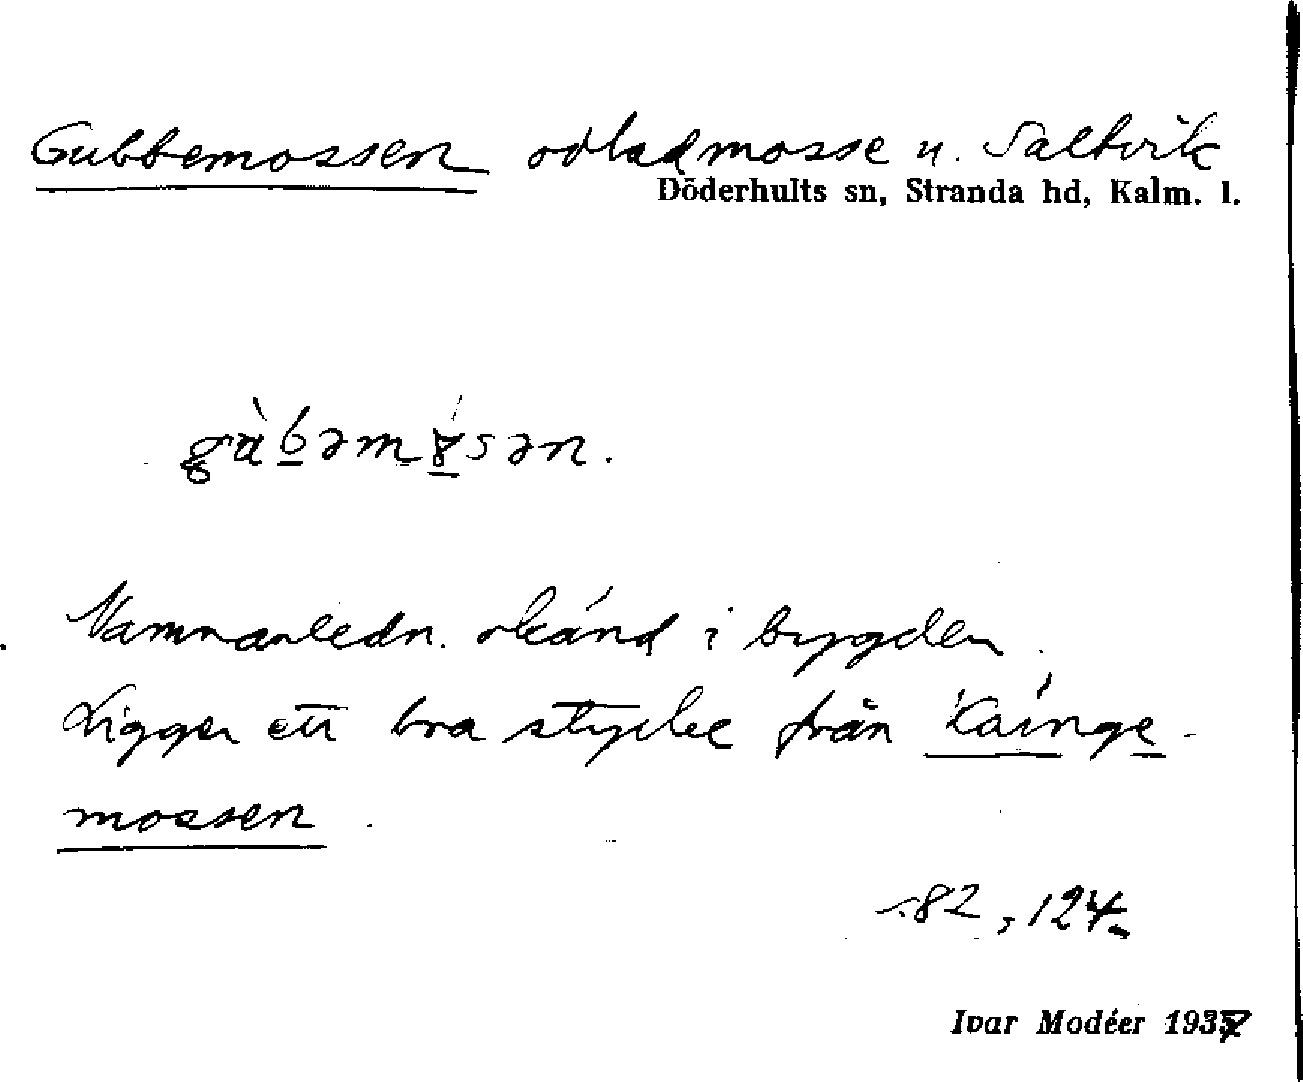 Gubbemossen odlad mosse u. Saltvik
Döderhults sn, Stranda hd, Kalm. l.
Namnanledn. okänd i bygden.
Ligger ett bra stycke från Kainge-
mossen.
s. 82, 124.
Ivar Modéer 1937